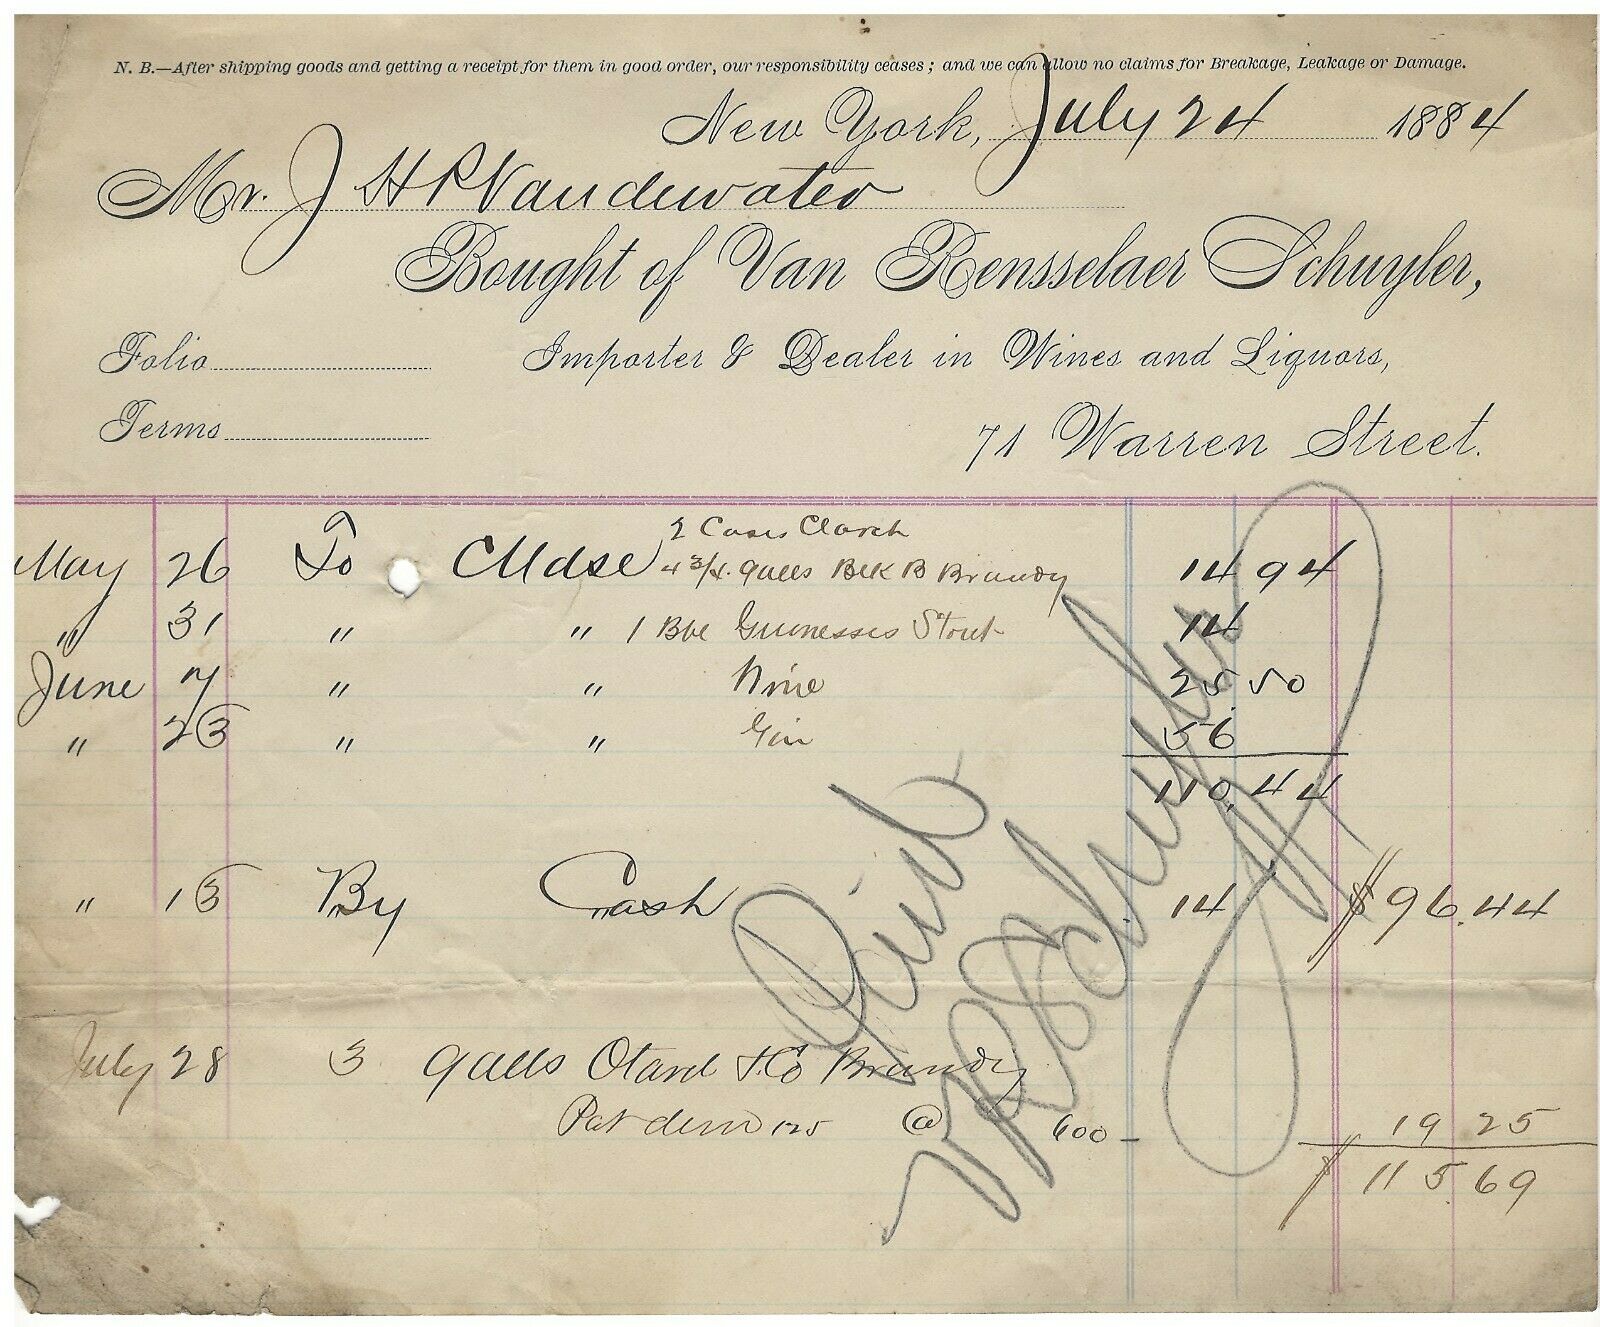 N. B.—After shipping goods and getting a receipt for them in good order, our responsibility ceases; and we can allow no claims for Breakage, Leakage or Damage.
New York, July 24 1884
Mr. J H P Vandewater
Bought of Van Rensselaer Schuyler,
Folio Importer & Dealer in Wines and Liquors,
Terms
71 Warren Street.
2 Cases
May 26 To Mdse 4 3/4 galls Blk B Brandy 14 94
" 31 " " 1 Bbl Guinesses Stout 14
June 7 " " Wine 25 50
" 23 " " Gin 56
110.44
" 13 By Cash 14 $96.44
Paid
V R Schuyler
July 28 3 galls Otard & Co Brandy
125 @ 600 — 19 25
$ 115.69